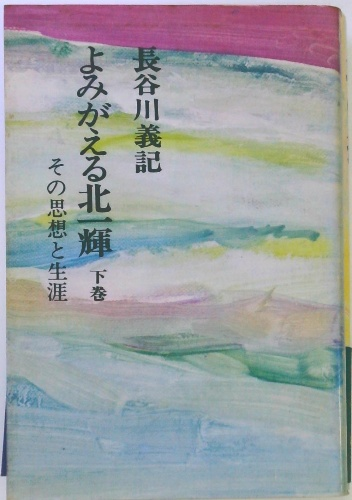 長谷川義記
よみがえる北一輝 下巻
その思想と生涯